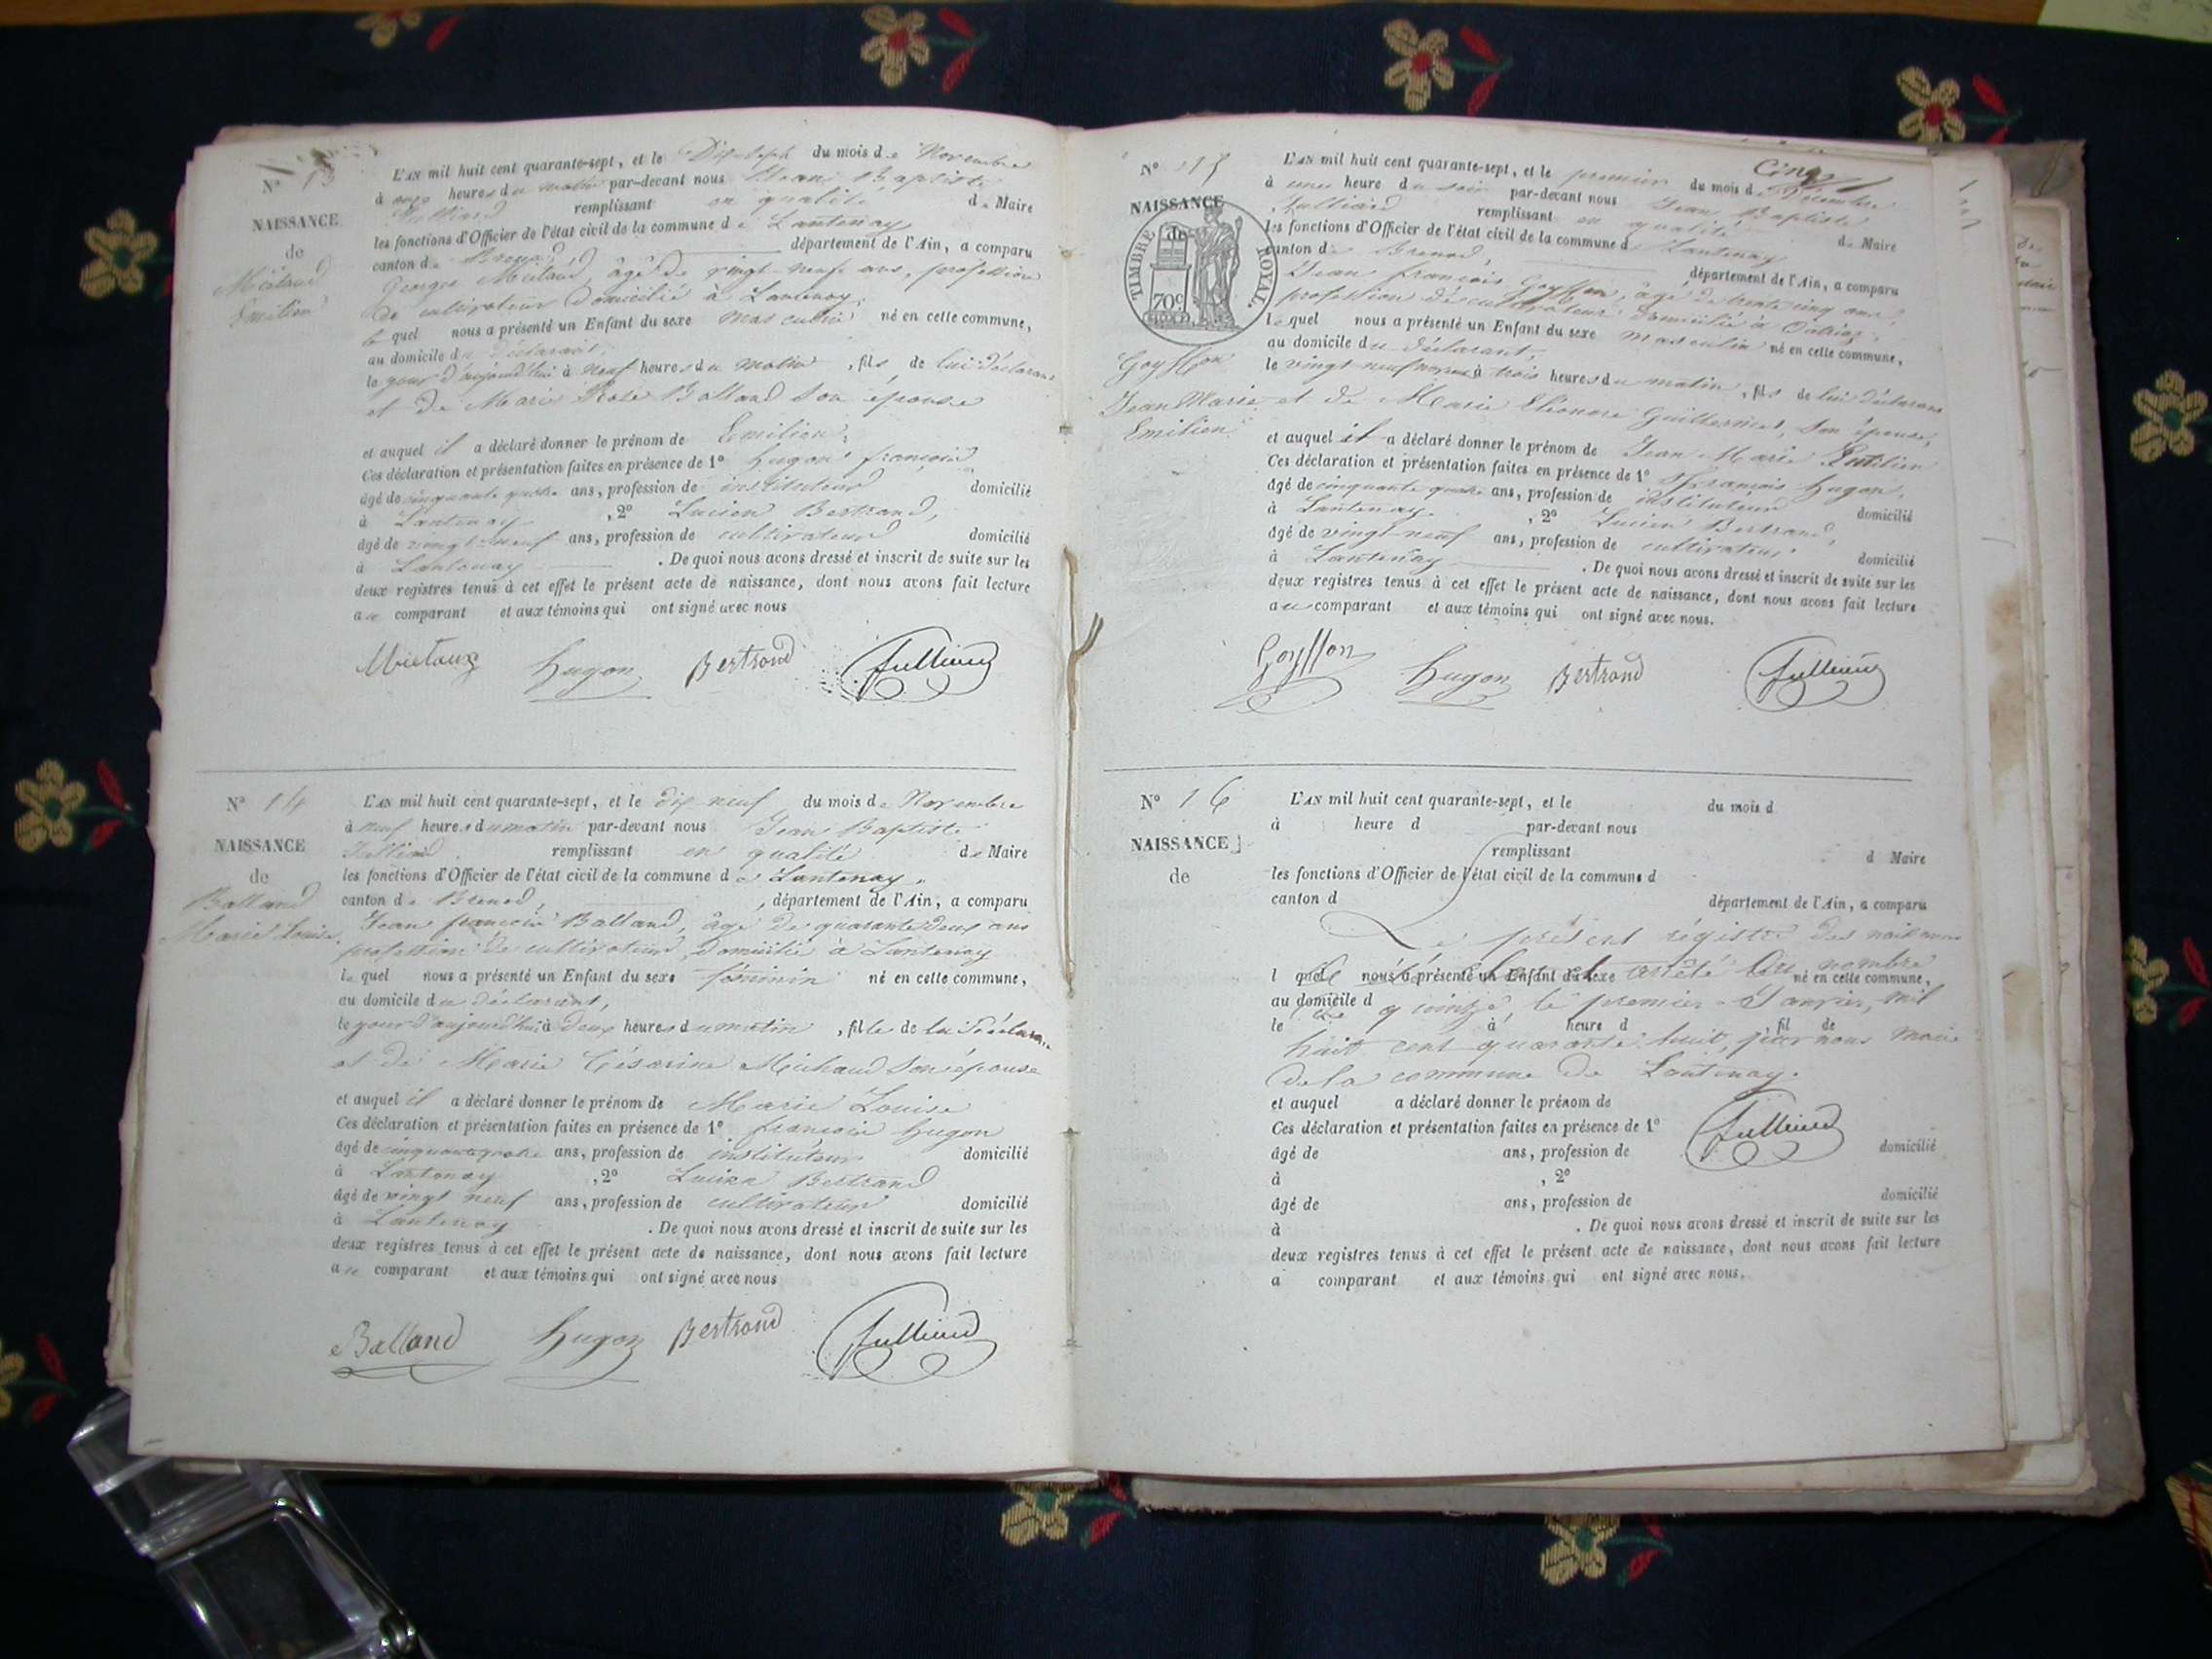 N° 13
NAISSANCE
de
Emilien
L'AN mil huit cent quarante-sept, et le Dix-sept du mois de Novembre
à onze heures du matin par-devant nous Jean Baptiste
Julliard remplissant en qualité de Maire
les fonctions d'Officier de l'état civil de la commune de Lantenay
canton de Brenod département de l'Ain, a comparu
Georges âgé de vingt-neuf ans, profession
de cultivateur domicilié à Lantenay,
le quel nous a présenté un Enfant du sexe masculin né en cette commune,
au domicile du déclarant,
le jour d'aujourd'hui à neuf heures du matin, fils de lui déclarant
et de Marie Rose Balland son épouse
et auquel il a déclaré donner le prénom de Emilien,
Ces déclaration et présentation faites en présence de 1° hugon françois
âgé de cinquante quatre ans, profession de instituteur domicilié
à Lantenay, 2° Lucien Bertrand,
âgé de vingt-neuf ans, profession de cultivateur domicilié
à Lantenay. De quoi nous avons dressé et inscrit de suite sur les
deux registres tenus à cet effet le présent acte de naissance, dont nous avons fait lecture
au comparant et aux témoins qui ont signé avec nous
hugon Bertrand Julliard
N° 14
NAISSANCE
de
Balland
Marie Louise
L'AN mil huit cent quarante-sept, et le dix neuf du mois de Novembre
à neuf heures du matin par-devant nous Jean Baptiste
Julliard remplissant en qualité de Maire
les fonctions d'Officier de l'état civil de la commune de Lantenay,
canton de Brenod, département de l'Ain, a comparu
Jean françois Balland, âgé de quarante deux ans
profession de cultivateur, domicilié à Lantenay
le quel nous a présenté un Enfant du sexe féminin né en cette commune,
au domicile du déclarant,
le jour d'aujourd'hui à deux heures du matin, fille de lui déclarant
et de Marie Césarine Michaud son épouse
et auquel il a déclaré donner le prénom de Marie Louise
Ces déclaration et présentation faites en présence de 1° françois hugon
âgé de cinquante quatre ans, profession de instituteur domicilié
à Lantenay, 2° Lucien Bertrand
âgé de vingt neuf ans, profession de cultivateur domicilié
à Lantenay. De quoi nous avons dressé et inscrit de suite sur les
deux registres tenus à cet effet le présent acte de naissance, dont nous avons fait lecture
au comparant et aux témoins qui ont signé avec nous
Balland hugon Bertrand Julliard
Cinq
N° 15
NAISSANCE
de
TIMBRE ROYAL.
70c
Goyffon
Jean Marie
Emilien
L'AN mil huit cent quarante-sept, et le premier du mois de Décembre
à une heure du soir par-devant nous Jean Baptiste
Julliard remplissant en qualité de Maire
les fonctions d'Officier de l'état civil de la commune de Lantenay
canton de Brenod, département de l'Ain, a comparu
Jean françois Goyffon, âgé de trente cinq ans,
profession de cultivateur domicilié à
le quel nous a présenté un Enfant du sexe masculin né en cette commune,
au domicile du déclarant,
le vingt neuf à trois heures du matin, fils de lui déclarant
et de Marie Eléonore Guillermet, son épouse,
et auquel il a déclaré donner le prénom de Jean Marie Emilien
Ces déclaration et présentation faites en présence de 1° François hugon,
âgé de cinquante quatre ans, profession de instituteur domicilié
à Lantenay, 2° Lucien Bertrand,
âgé de vingt-neuf ans, profession de cultivateur domicilié
à Lantenay. De quoi nous avons dressé et inscrit de suite sur les
deux registres tenus à cet effet le présent acte de naissance, dont nous avons fait lecture
au comparant et aux témoins qui ont signé avec nous.
Goyffon hugon Bertrand Julliard
N° 16
NAISSANCE
de
L'AN mil huit cent quarante-sept, et le du mois d
à heure d par-devant nous
remplissant d Maire
les fonctions d'Officier de l'état civil de la commune d
canton d département de l'Ain, a comparu
Le présent régistre des naissances
l quel nous a présenté un Enfant du sexe né en cette commune,
arrêté au nombre
au domicile d
de quinze, le premier Janvier, mil
le à heure d , fil de
huit cent quarante huit, par nous Maire
de la commune de Lantenay.
et auquel a déclaré donner le prénom de
Ces déclaration et présentation faites en présence de 1°
Julliard
âgé de ans, profession de domicilié
à , 2°
âgé de ans, profession de domicilié
à . De quoi nous avons dressé et inscrit de suite sur les
deux registres tenus à cet effet le présent acte de naissance, dont nous avons fait lecture
a comparant et aux témoins qui ont signé avec nous.